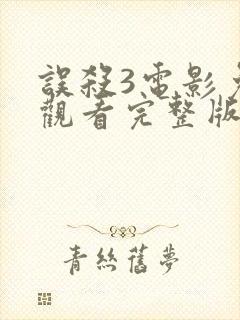 誤殺3電影
觀看完整版
青絲舊夢